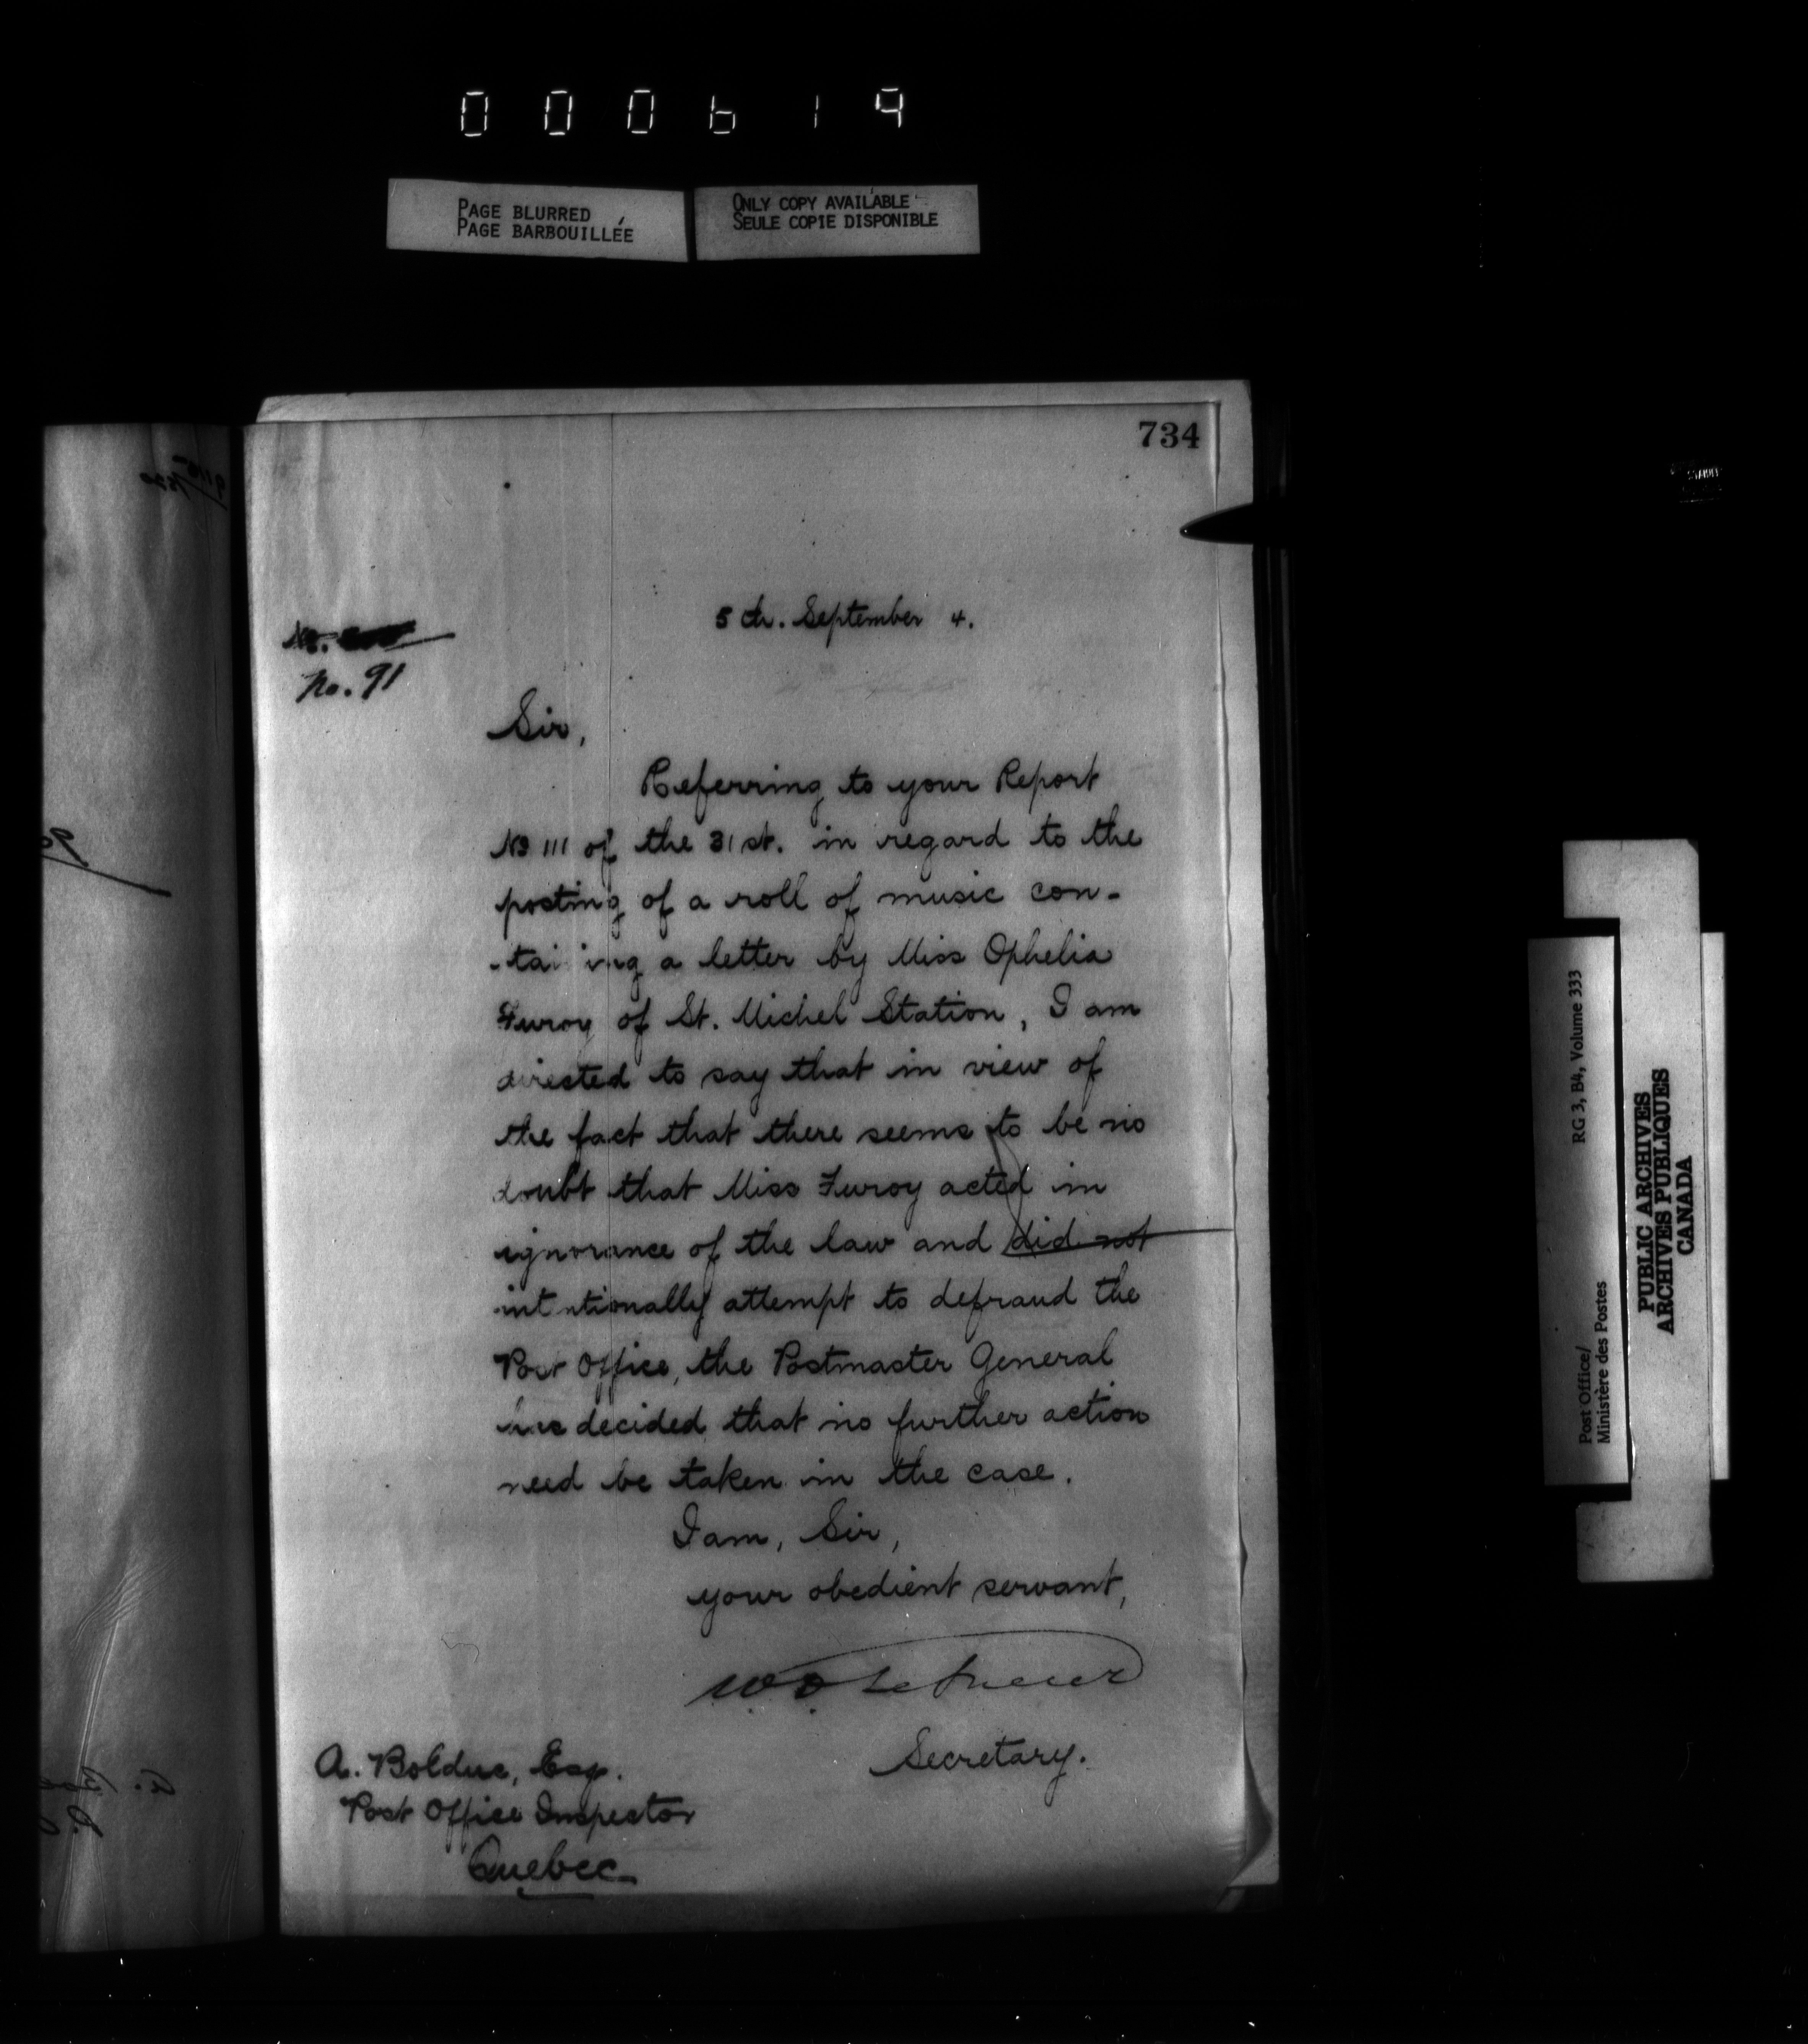 000619
PAGE BLURRED
PAGE BARBOUILLÉE
ONLY COPY AVAILABLE
SEULE COPIE DISPONIBLE
734
5th. September 4.
No. 91
Sir,
Referring to your Report
No 111 of the 31st. in regard to the
posting of a roll of music con-
-tai ing a letter by Miss Ophelia
Furoy of St. Michel Station, I am
directed to say that in view of
the fact that there seems to be no
doubt that Miss Furoy acted in
ignorance of the law and did not
int ntionally attempt to defraud the
Post Office, the Postmaster General
has decided that no further action
need be taken in the case.
I am, Sir,
your obedient servant,
Secretary.
A. Bolduc, Esq.
Post Office Inspector
Quebec
Post Office/
Ministère des Postes
RG 3, B4, Volume 333
PUBLIC ARCHIVES
ARCHIVES PUBLIQUES
CANADA